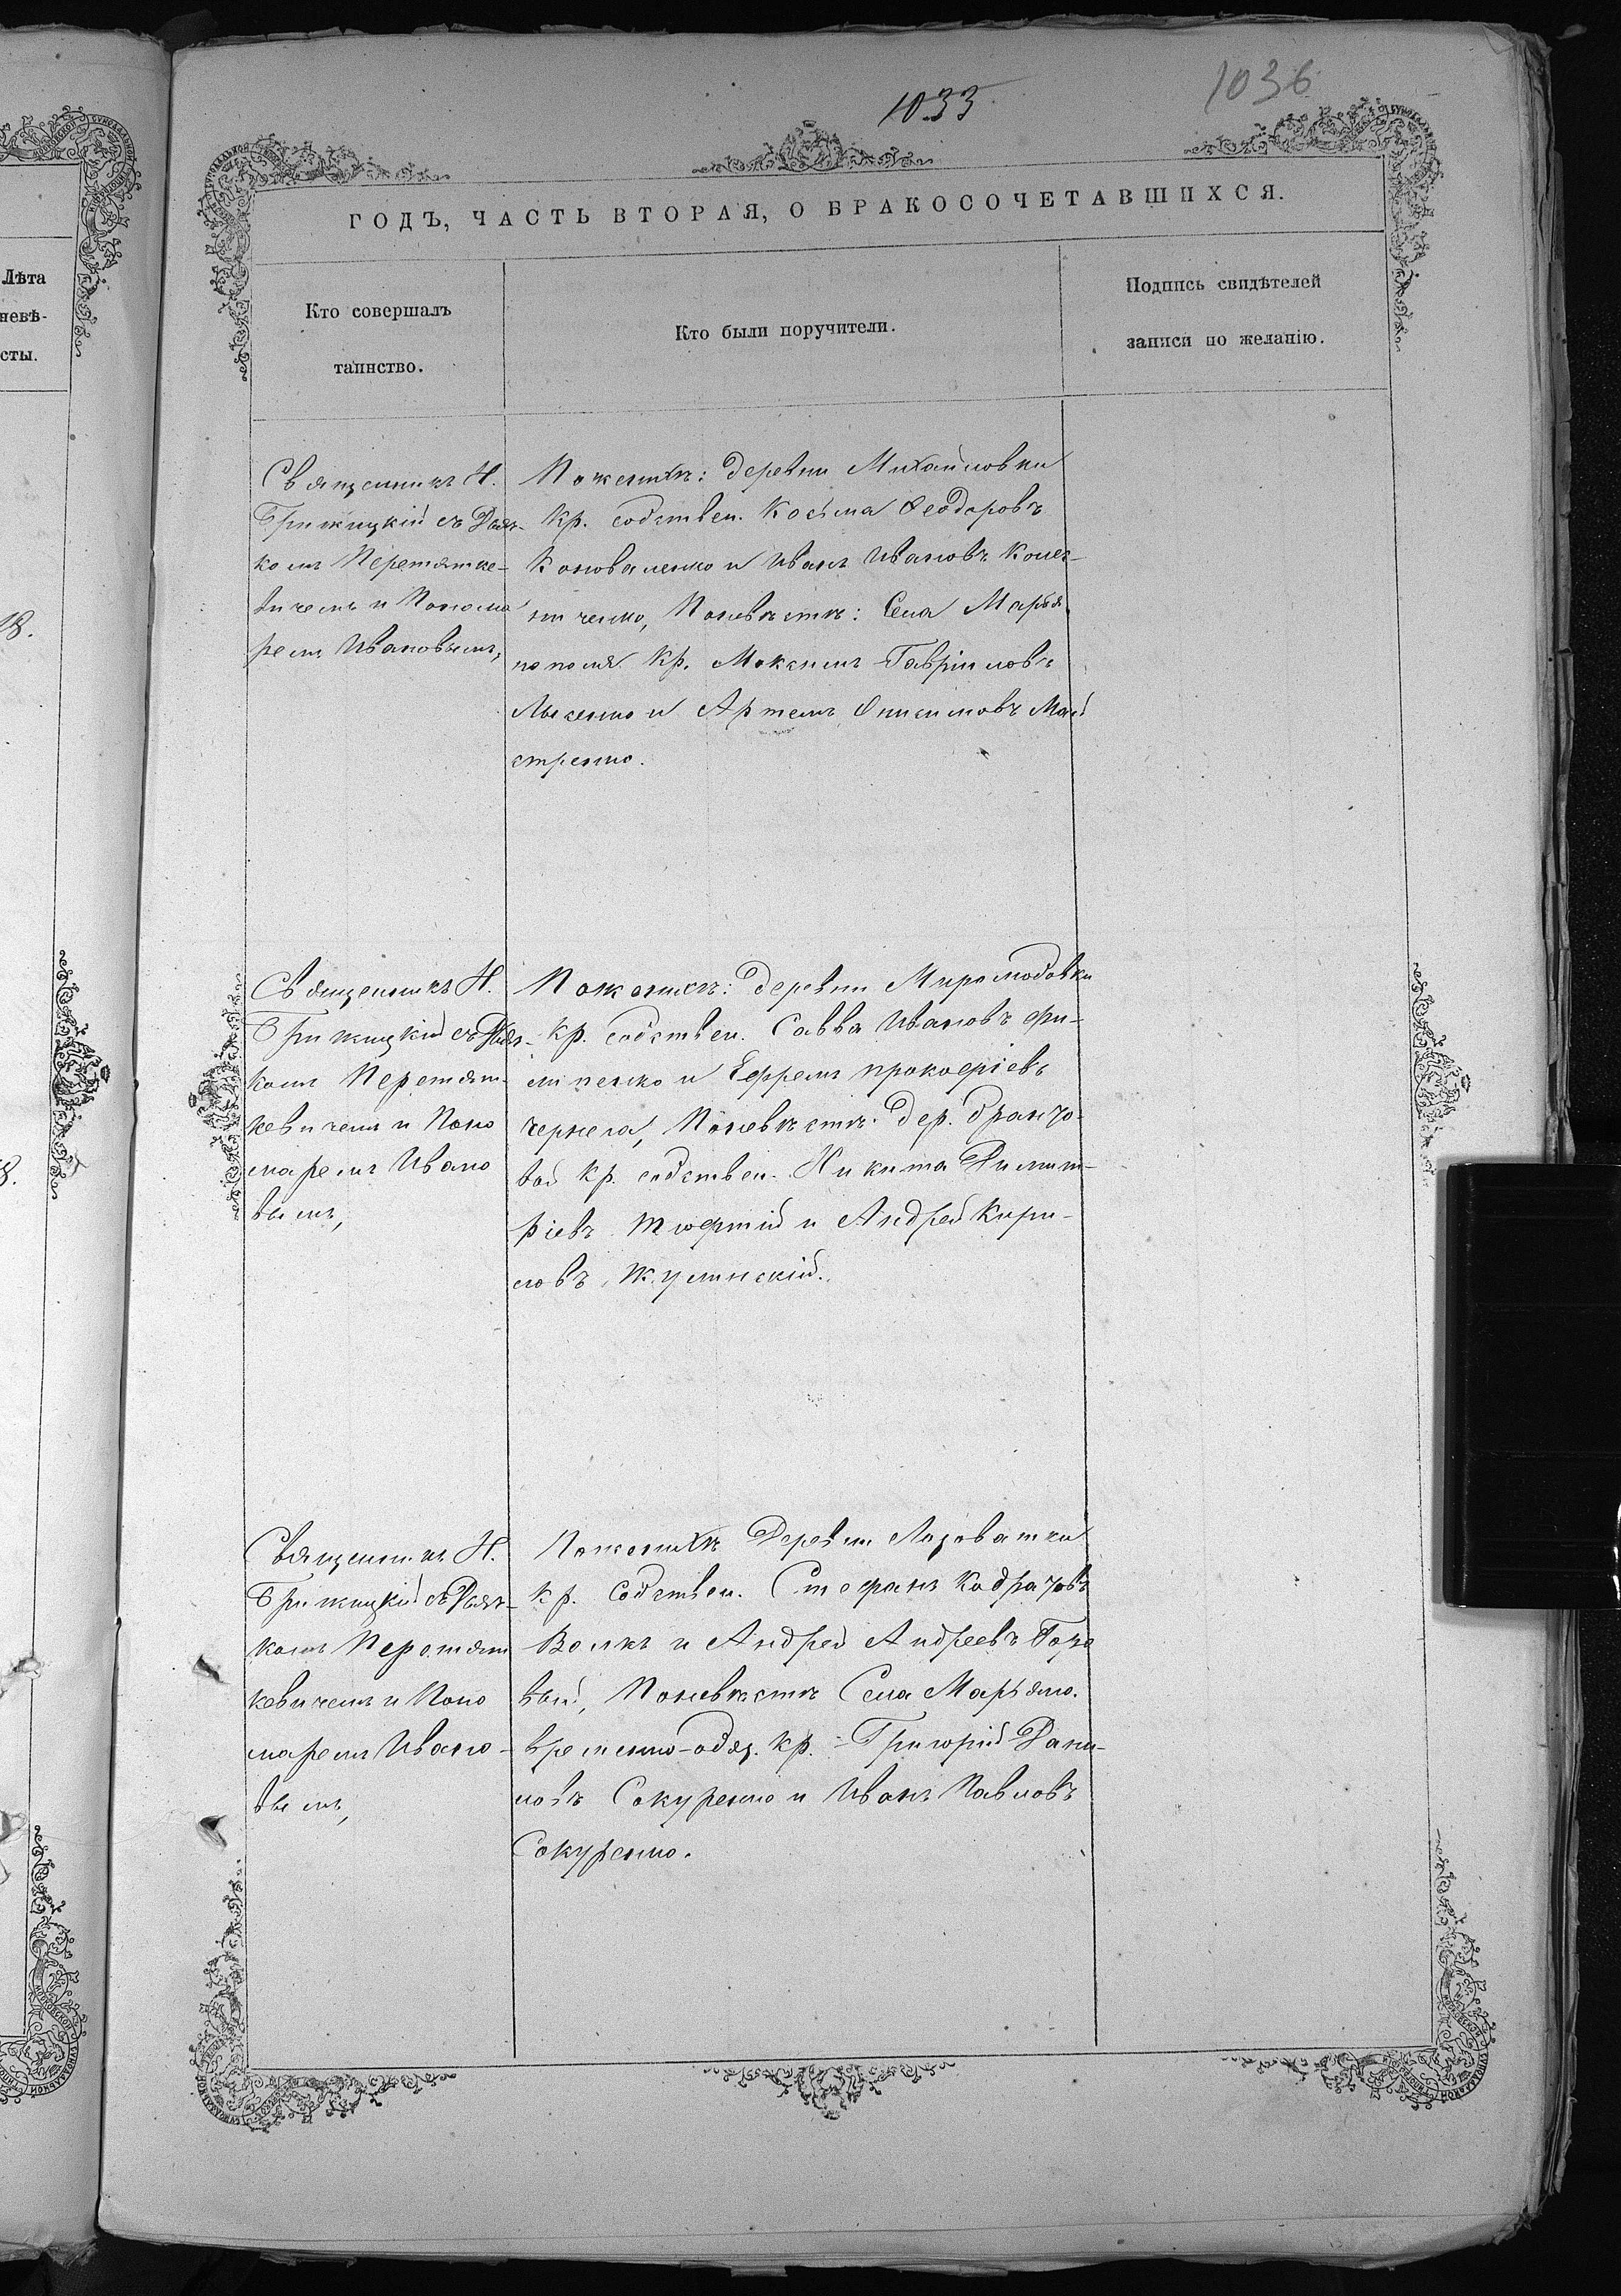 1033
1036
ГОДЪ, ЧАСТЬ ВТОРАЯ, О БРАКОСОЧЕТАВШИХСЯ.
Лѣта
невѣ-
сты.
Кто совершалъ
таинство.
Кто были поручители.
Подпись свидѣтелей
записи по желанію.
Священникъ Н.
Грижицкій съ Дьяч-
комъ Перетятке-
вичемъ и Понома
ремъ Ивановымъ,
По женихѣ: деревни Михайловки
кр. собствен. Косьма Ѳеодоровъ
Коноваленко и Иванъ Ивановъ
По невѣстѣ: Села Марья
нополя кр. Максимъ Гавріиловъ
Лысенко и Артемъ Онисимовъ Май
стренко.
Священникъ Н.
Грижицкій съ Дьяч-
комъ Перетят-
кевичемъ и Поно
маремъ Ивано
вымъ,
По женихѣ: деревни Миролюбовки
кр. собствен. Савва Ивановъ Фи-
липенко и Ефремъ Прокофіевъ
Чернега, По невѣстѣ: дер.
кр. собствен. Никита Димит-
ріевъ и Андрей Кири-
ловъ Жулинскій.
Священникъ Н.
Грижицкій съ Дьяч-
комъ Перетят
кевичемъ и Поно
маремъ Ивано-
вымъ,
По женихѣ Деревни Лозоватки
кр. Собствен. Стефанъ Кодратовъ
Волкъ и Андрей Андреевъ
По невѣстѣ Села Марьяно.
временно-обяз. кр. Григорій Дани-
ловъ Сокуренко и Иванъ Павловъ
Сокуренко.